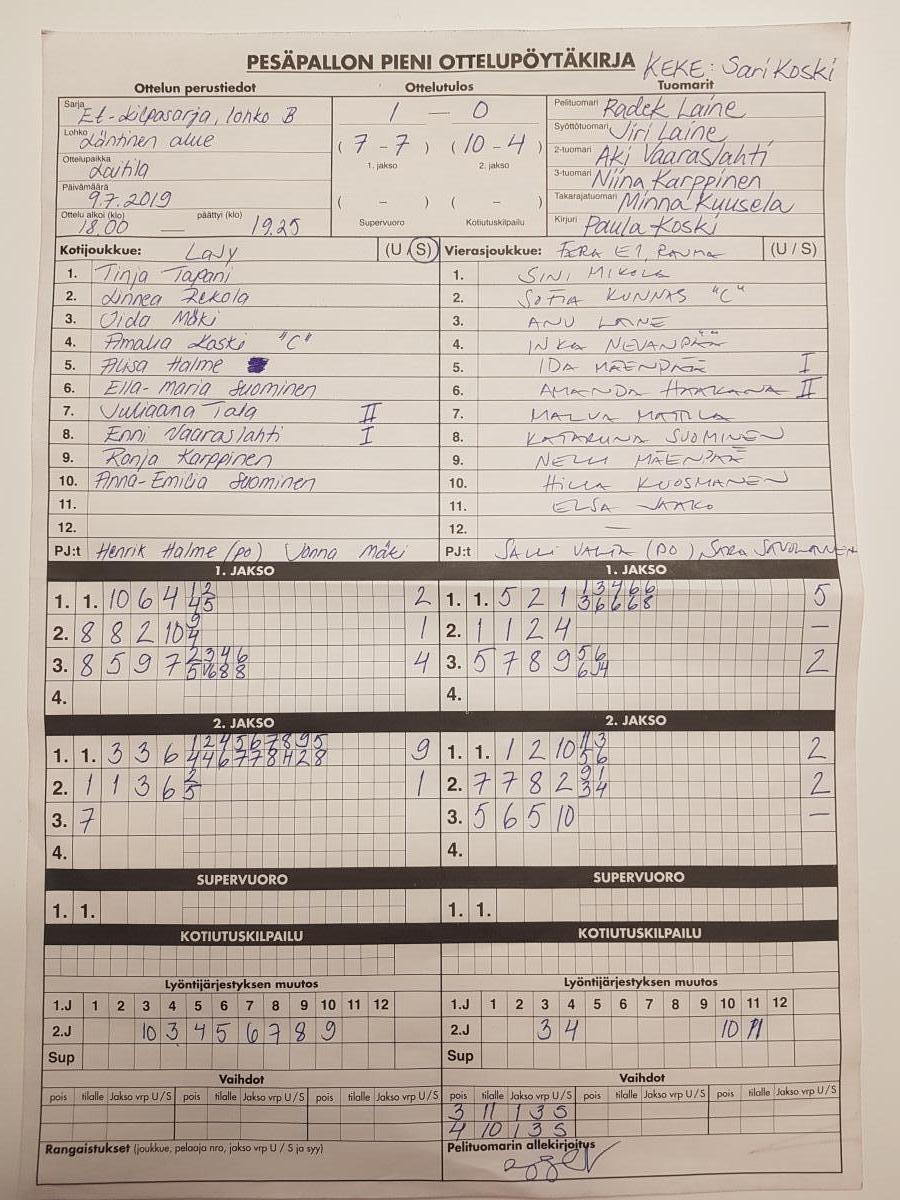 PESÄPALLON PIENI OTTELUPÖYTÄKIRJA KEKE: Sari Koski
Ottelun perustiedot Ottelutulos Tuomarit
Sarja Et-kilpasarja, lohko B
Lohko Läntinen alue
Ottelupaikka Laitila
Päivämäärä 9.7.2019
Ottelu alkoi (klo) päättyi (klo)
18.00 — 19.25
1 — 0
(7 - 7) (10 - 4)
1. jakso 2. jakso
( - ) ( - )
Supervuoro Kotiutuskilpailu
Pelituomari Radek Laine
Syöttötuomari Jiri Laine
2-tuomari Aki Vaaraslahti
3-tuomari Niina Karppinen
Takarajatuomari Minna Kuusela
Kirjuri Paula Koski
Kotijoukkue: LaJy (U / S)
1. Tinja Tapani
2. Linnea Rekola
3. Oida Mäki
4. Amalia Laski "C"
5. Alisa Halme
6. Ella-Maria Suominen
7. Juliaana Tala II
8. Enni Vaaraslahti I
9. Ronja Karppinen
10. Anna-Emilia Suominen
11.
12.
PJ:t Henrik Halme (po) Jonna Mäki
Vierasjoukkue: FERA E1, RAUMA (U / S)
1. SINI MIKOLA
2. SOFIA KUNNAS "C"
3. ANU LAINE
4. INKA NEVANPÄÄ
5. IDA MÄENPÄÄ I
6. AMANDA HAAKANA II
7. MALVA MATTILA
8. KATARIINA SUOMINEN
9. NELLI MÄENPÄÄ
10. HILLA KUOSMANEN
11. ELSA JAAKO
12. —
PJ:t SALLI VALTA (PO), SARA SAVOLAINEN
1. JAKSO
1. 1. 10 6 4 1 2 2
4 5
2. 8 8 2 10 9 1
4
3. 8 5 9 7 2 3 4 6 4
5 6 8 8
4.
1. JAKSO
1. 1. 5 2 1 1 3 4 6 6 5
3 6 6 6 8
2. 1 1 2 4 —
3. 5 7 8 9 5 6 2
6 4
4.
2. JAKSO
1. 1. 3 3 6 1 2 4 5 6 7 8 9 5 9
4 4 6 7 7 8 4 2 8
2. 1 1 3 6 2 1
5
3. 7
4.
2. JAKSO
1. 1. 1 2 10 11 3 2
5 6
2. 7 7 8 2 9 1 2
3 4
3. 5 6 5 10 —
4.
SUPERVUORO
1. 1.
SUPERVUORO
1. 1.
KOTIUTUSKILPAILU
KOTIUTUSKILPAILU
Lyöntijärjestyksen muutos
1.J 1 2 3 4 5 6 7 8 9 10 11 12
2.J 10 3 4 5 6 7 8 9
Sup
Lyöntijärjestyksen muutos
1.J 1 2 3 4 5 6 7 8 9 10 11 12
2.J 3 4 10 11
Sup
Vaihdot
pois tilalle Jakso vrp U / S pois tilalle Jakso vrp U / S pois tilalle Jakso vrp U / S
Vaihdot
pois tilalle Jakso vrp U / S pois tilalle Jakso vrp U / S pois tilalle Jakso vrp U / S
3 11 1 3 S
4 10 1 3 S
Rangaistukset (joukkue, pelaaja nro, jakso vrp U / S ja syy)
Pelituomarin allekirjoitus